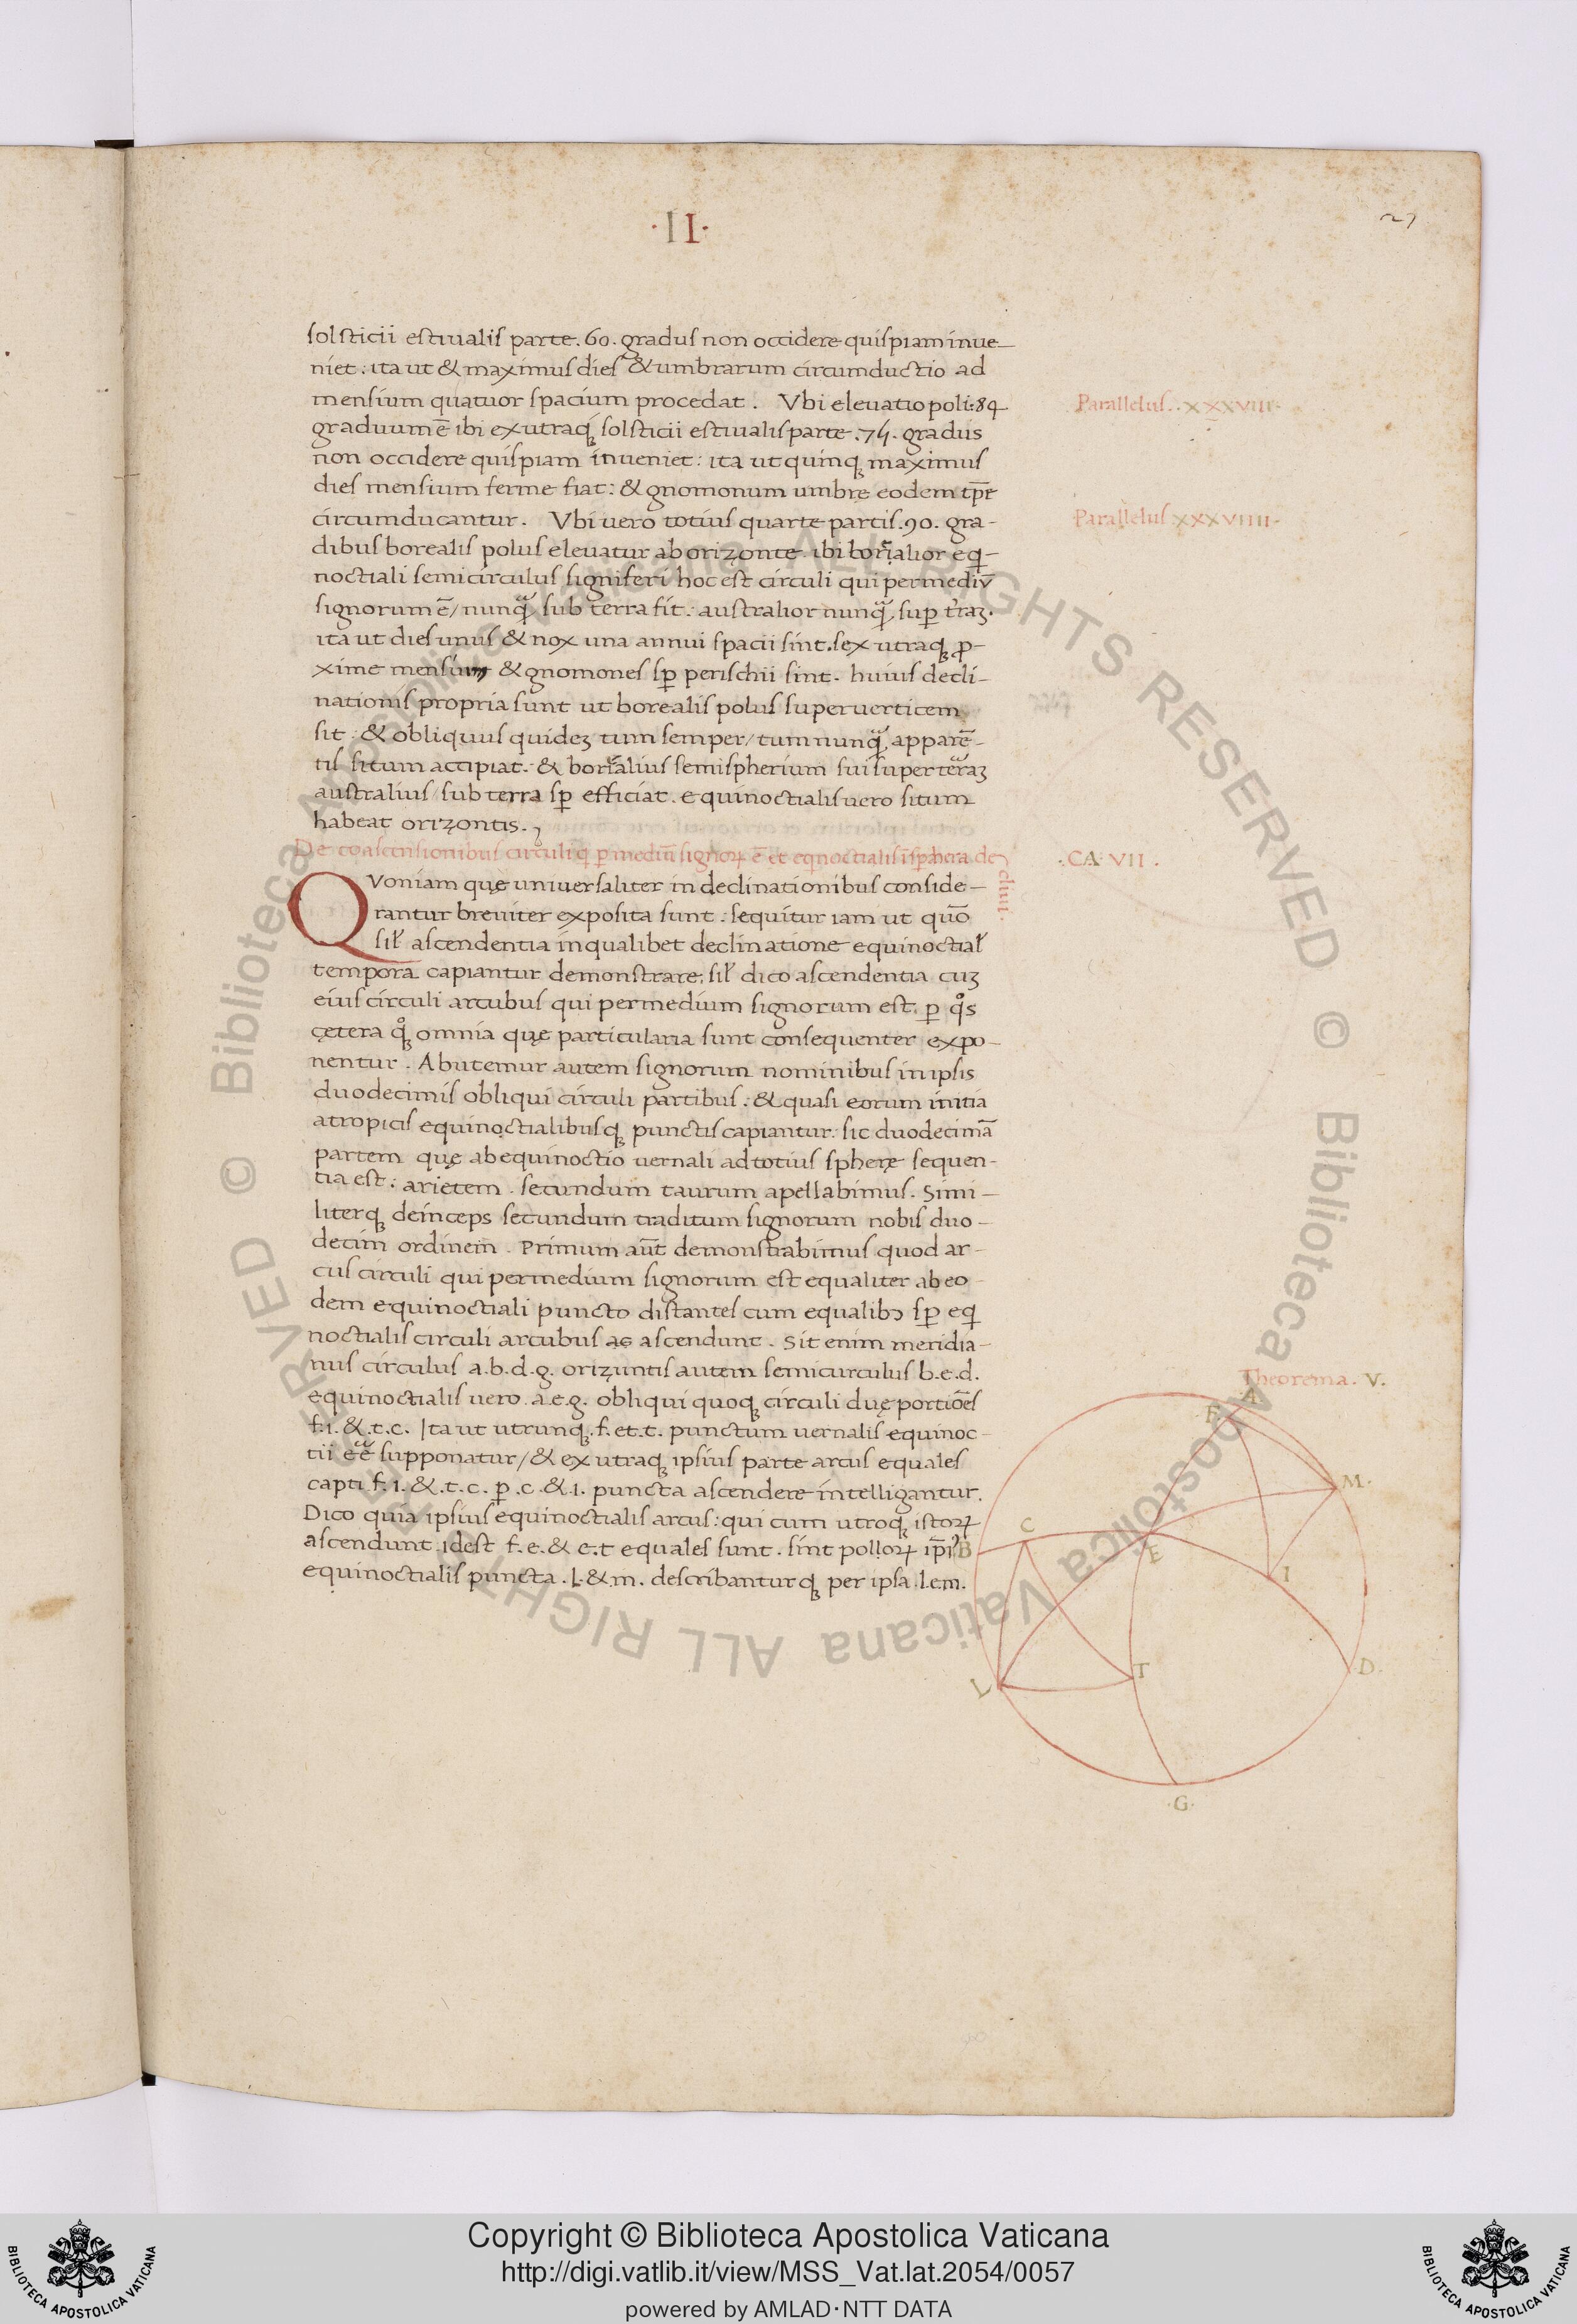 ·II·
27
solsticii estiualis parte .60. gradus non occidere quispiam inue-
niet: ita ut & maximus dies & umbrarum circumductio ad
mensium quatuor spacium procedat. Vbi eleuatio poli .84
Parallelus .XXXVIII.
graduum ē ibi ex utraqꝫ solsticii estiualis parte .74. gradus
non occidere quispiam inueniet: ita ut quinqꝫ maximus
dies mensium ferme fiat: & gnomonum umbrę eodem tp̄r
circumducantur. Vbi uero totius quarte partis .90. gra-
Parallelus XXXVIIII.
dibus borealis polus eleuatur ab orizonte ibi borealior eq-
noctiali semicirculus signiferi hoc est circuli qui per mediū
signorum ē / nunqᷓ sub terra fit: australior nunqᷓ sup traꝫ.
ita ut dies unus & nox una annui spacii sint. sex utraqꝫ ꝓ-
xime mensium & gnomones sꝑ perischii sint. huius decli-
nationis propria sunt ut borealis polus super uerticem
sit: & obliquus quideꝫ tum semper / tum nunqᷓ apparē-
tis situm accipiat: & borealius semispherium sui super terraꝫ
australius / sub terra sꝑ efficiat. equinoctialis uero situm
habeat orizontis.
De coascensionibus circuli q ꝑ mediū signoꝝ ē et eqnoctialis ī sphera decliui.
·CA· VII.
Quoniam quę uniuersaliter in declinationibus conside-
rantur breuiter exposita sunt: sequitur iam ut quō
sił ascendentia in qualibet declinatione equinoctiał
tempora capiantur demonstrare; sił dico ascendentia cuꝫ
eius circuli arcubus qui per medium signorum est. ꝑ qͦs
cętera qͦꝫ omnia quę particularia sunt consequenter expo-
nentur. Abutemur autem signorum nominibus in ipsis
duodecimis obliqui circuli partibus: & quasi eorum initia
a tropicis equinoctialibusqꝫ punctis capiantur: sic duodecimā
partem quę ab equinoctio uernali ad totius spherę sequen-
tia est: arietem. secundum taurum apellabimus. Simi-
literqꝫ deinceps secundum traditum signorum nobis duo-
decim ordinem. Primum aūt demonstrabimus quod ar-
cus circuli qui per medium signorum est equaliter ab eo-
dem equinoctiali puncto distantes cum equalibꝰ sꝑ eq
noctialis circuli arcubus ascendunt. Sit enim meridia-
nus circulus a.b.d.g. orizuntis autem semicirculus b.e.d.
equinoctialis uero a.e.g. obliqui quoqꝫ circuli duę portiōes
f.i. & .t.c. Ita ut utrunqꝫ .f. et .t. punctum uernalis equinoc-
tii eē supponatur / & ex utraqꝫ ipsius parte arcus equales
capti f.i. & .t.c. ꝑ .c. & .i. puncta ascendere intelligantur.
Dico quia ipsius equinoctialis arcus: qui cum utroqꝫ istoꝝ
ascendunt idest f.e. & e.t equales sunt. sint polloꝝ ip̄iꝰ
equinoctialis puncta .l. & .m. describanturqꝫ per ipsa .l.e.m.
Theorema. V.
A
F
M
C
B
E
I
T
D
L
G
Copyright © Biblioteca Apostolica Vaticana
http://digi.vatlib.it/view/MSS_Vat.lat.2054/0057
powered by AMLAD·NTT DATA
BIBLIOTECA APOSTOLICA VATICANA
BIBLIOTECA APOSTOLICA VATICANA
© Biblioteca Apostolica Vaticana ALL RIGHTS RESERVED © Biblioteca Apostolica Vaticana ALL RIGHTS RESERVED